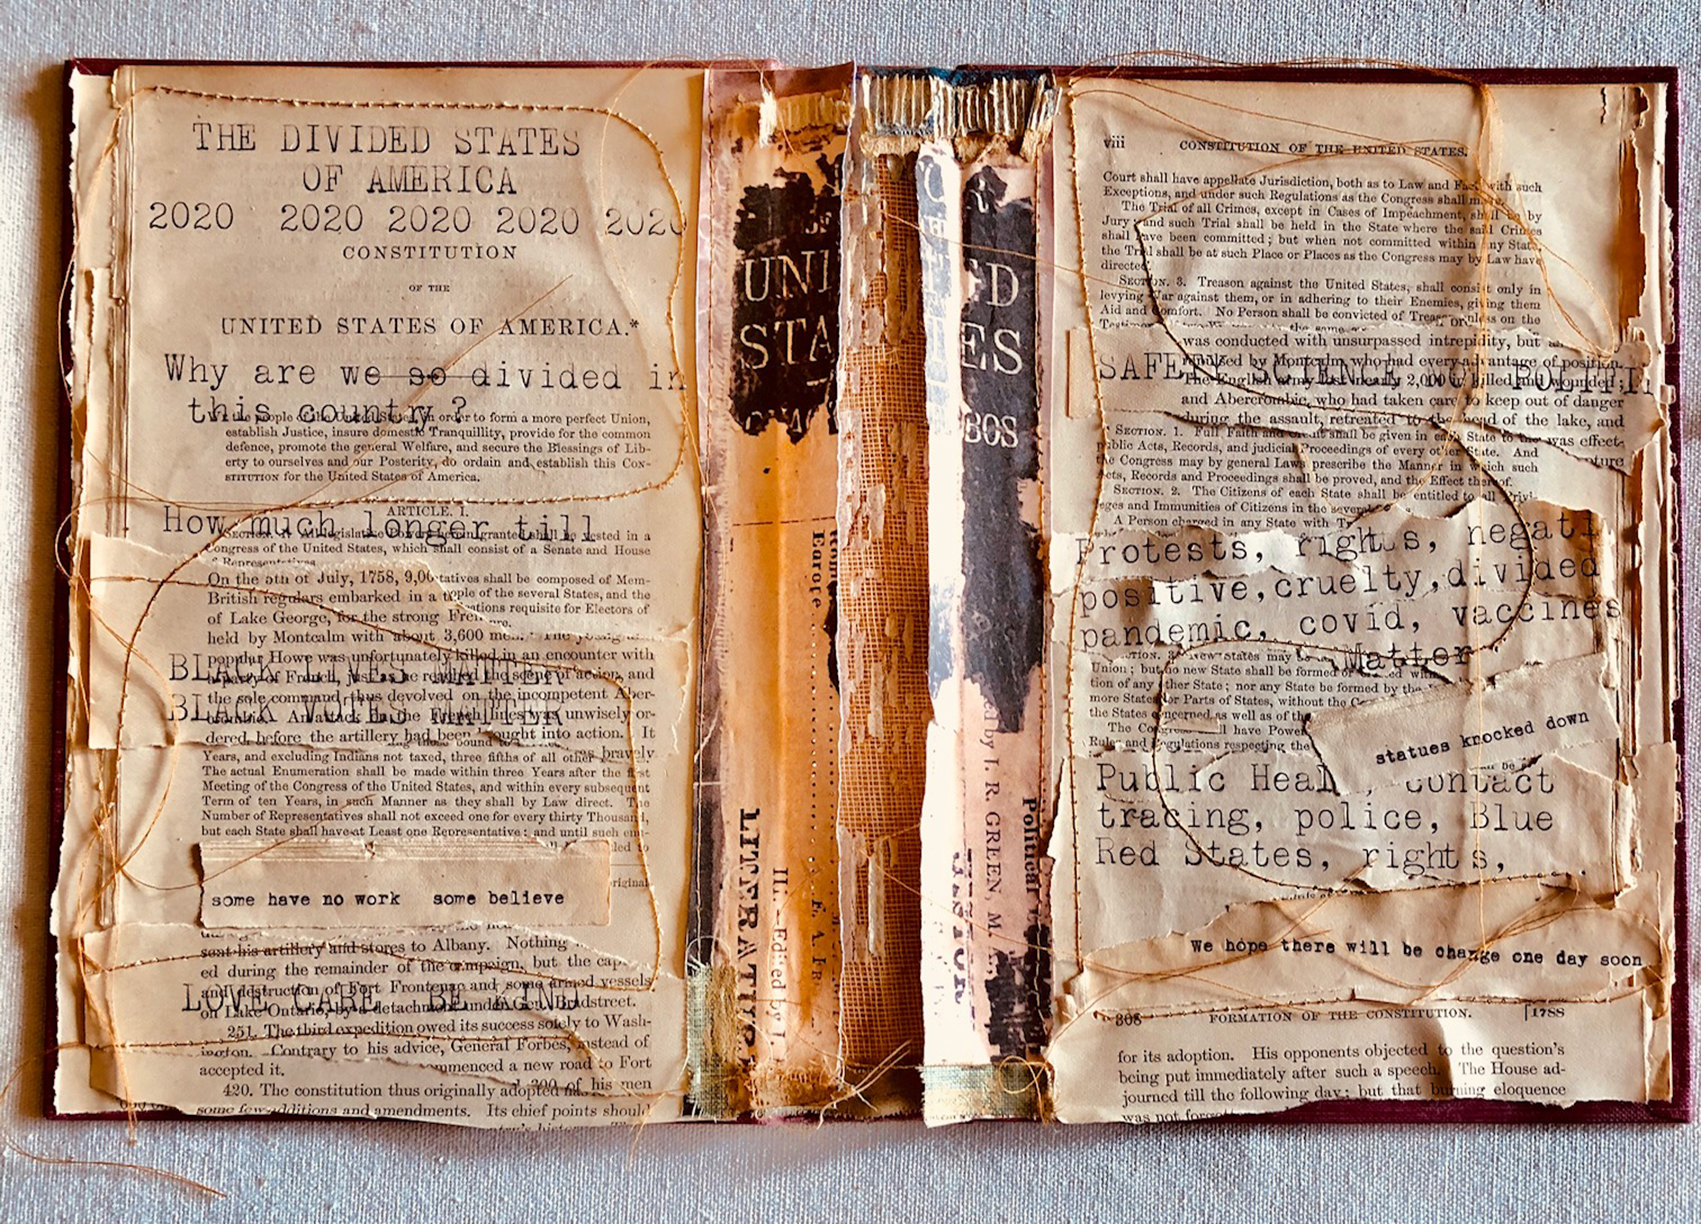 THE DIVIDED STATES
OF AMERICA
2020 2020 2020 2020 2020
CONSTITUTION
OF THE
UNITED STATES OF AMERICA.*
Why are we so divided in
this country?
people of the United States, in order to form a more perfect Union,
establish Justice, insure domestic Tranquillity, provide for the common
defence, promote the general Welfare, and secure the Blessings of Lib-
erty to ourselves and our Posterity, do ordain and establish this CON-
STITUTION for the United States of America.
ARTICLE. I.
How much longer till
SECTION. 1. All legislative Powers herein granted shall be vested in a
Congress of the United States, which shall consist of a Senate and House
Representatives
On the 5th of July, 1758, 9,00 tatives shall be composed of Mem-
British regulars embarked in a ople of the several States, and the
of Lake George, for the strong Fren ations requisite for Electors of
held by Montcalm with about 3,600 me
popular Howe was unfortunately killed in an encounter with
BLACK LIVES MATTER
a party of French, just as he reached the scene of action, and
the sole command thus devolved on the incompetent Aber-
BLACK VOTES MATTER
An attack on the French lines was unwisely or-
dered before the artillery had been brought into action. It
those bound to bravely
Years, and excluding Indians not taxed, three fifths of all other
The actual Enumeration shall be made within three Years after the first
Meeting of the Congress of the United States, and within every subsequent
Term of ten Years, in such Manner as they shall by Law direct. The
Number of Representatives shall not exceed one for every thirty Thousand,
but each State shall have at Least one Representative; and until such enu-
some have no work some believe
sent his artillery and stores to Albany. Nothing
ed during the remainder of the campaign, but the cap
and destruction of Fort Frontenac and some armed vessels
LOVE CARE BE KIND
on Lake Ontario, by a detachment under Bradstreet.
251. The third expedition owed its success solely to Wash-
ington. Contrary to his advice, General Forbes, instead of
accepted it. mmenced a new road to Fort
420. The constitution thus originally adopted of his men
some few additions and amendments. Its chief points should
OF
UNI
STA
Europe
LITERATURE
II. Edited by J.
E. A.
TED
TES
BOS
by J. R. GREEN, M.
Political
viii CONSTITUTION OF THE UNITED STATES.
Court shall have appellate Jurisdiction, both as to Law and Fact, with such
Exceptions, and under such Regulations as the Congress shall make.
The Trial of all Crimes, except in Cases of Impeachment, shall be by
Jury; and such Trial shall be held in the State where the said Crimes
shall have been committed; but when not committed within any State,
the Trial shall be at such Place or Places as the Congress may by Law have
directed.
SECTION. 3. Treason against the United States, shall consist only in
levying War against them, or in adhering to their Enemies, giving them
Aid and Comfort. No Person shall be convicted of Treason unless on the
the same
was conducted with unsurpassed intrepidity, but
repulsed by Montcalm, who had every advantage of position.
SAFE SCIENCE
The English army lost nearly 2,000 in killed and wounded;
and Abercrombie, who had taken care to keep out of danger
during the assault, retreated to the head of the lake, and
SECTION. 1. Full Faith and Credit shall be given in each State to the was effect-
public Acts, Records, and judicial Proceedings of every other State. And
the Congress may by general Laws prescribe the Manner in which such
Acts, Records and Proceedings shall be proved, and the Effect thereof.
SECTION. 2. The Citizens of each State shall be entitled to all Privi-
eges and Immunities of Citizens in the several
A Person charged in any State with Tr
Protests, rights, negati
positive, cruelty, divided
pandemic, covid, vaccines
Matter
New States may be
Union; but no new State shall be formed or
tion of any other State; nor any State be formed by the
more States, or Parts of States, without the
the States concerned as well as of the
The Congress shall have Power
Rules and Regulations respecting the
statues knocked down
Public Heal , contact
tracing, police, Blue
Red States, rights,
We hope there will be change one day soon
308 FORMATION OF THE CONSTITUTION. [1788
for its adoption. His opponents objected to the question's
being put immediately after such a speech. The House ad-
journed till the following day; but that burning eloquence
was not forgot